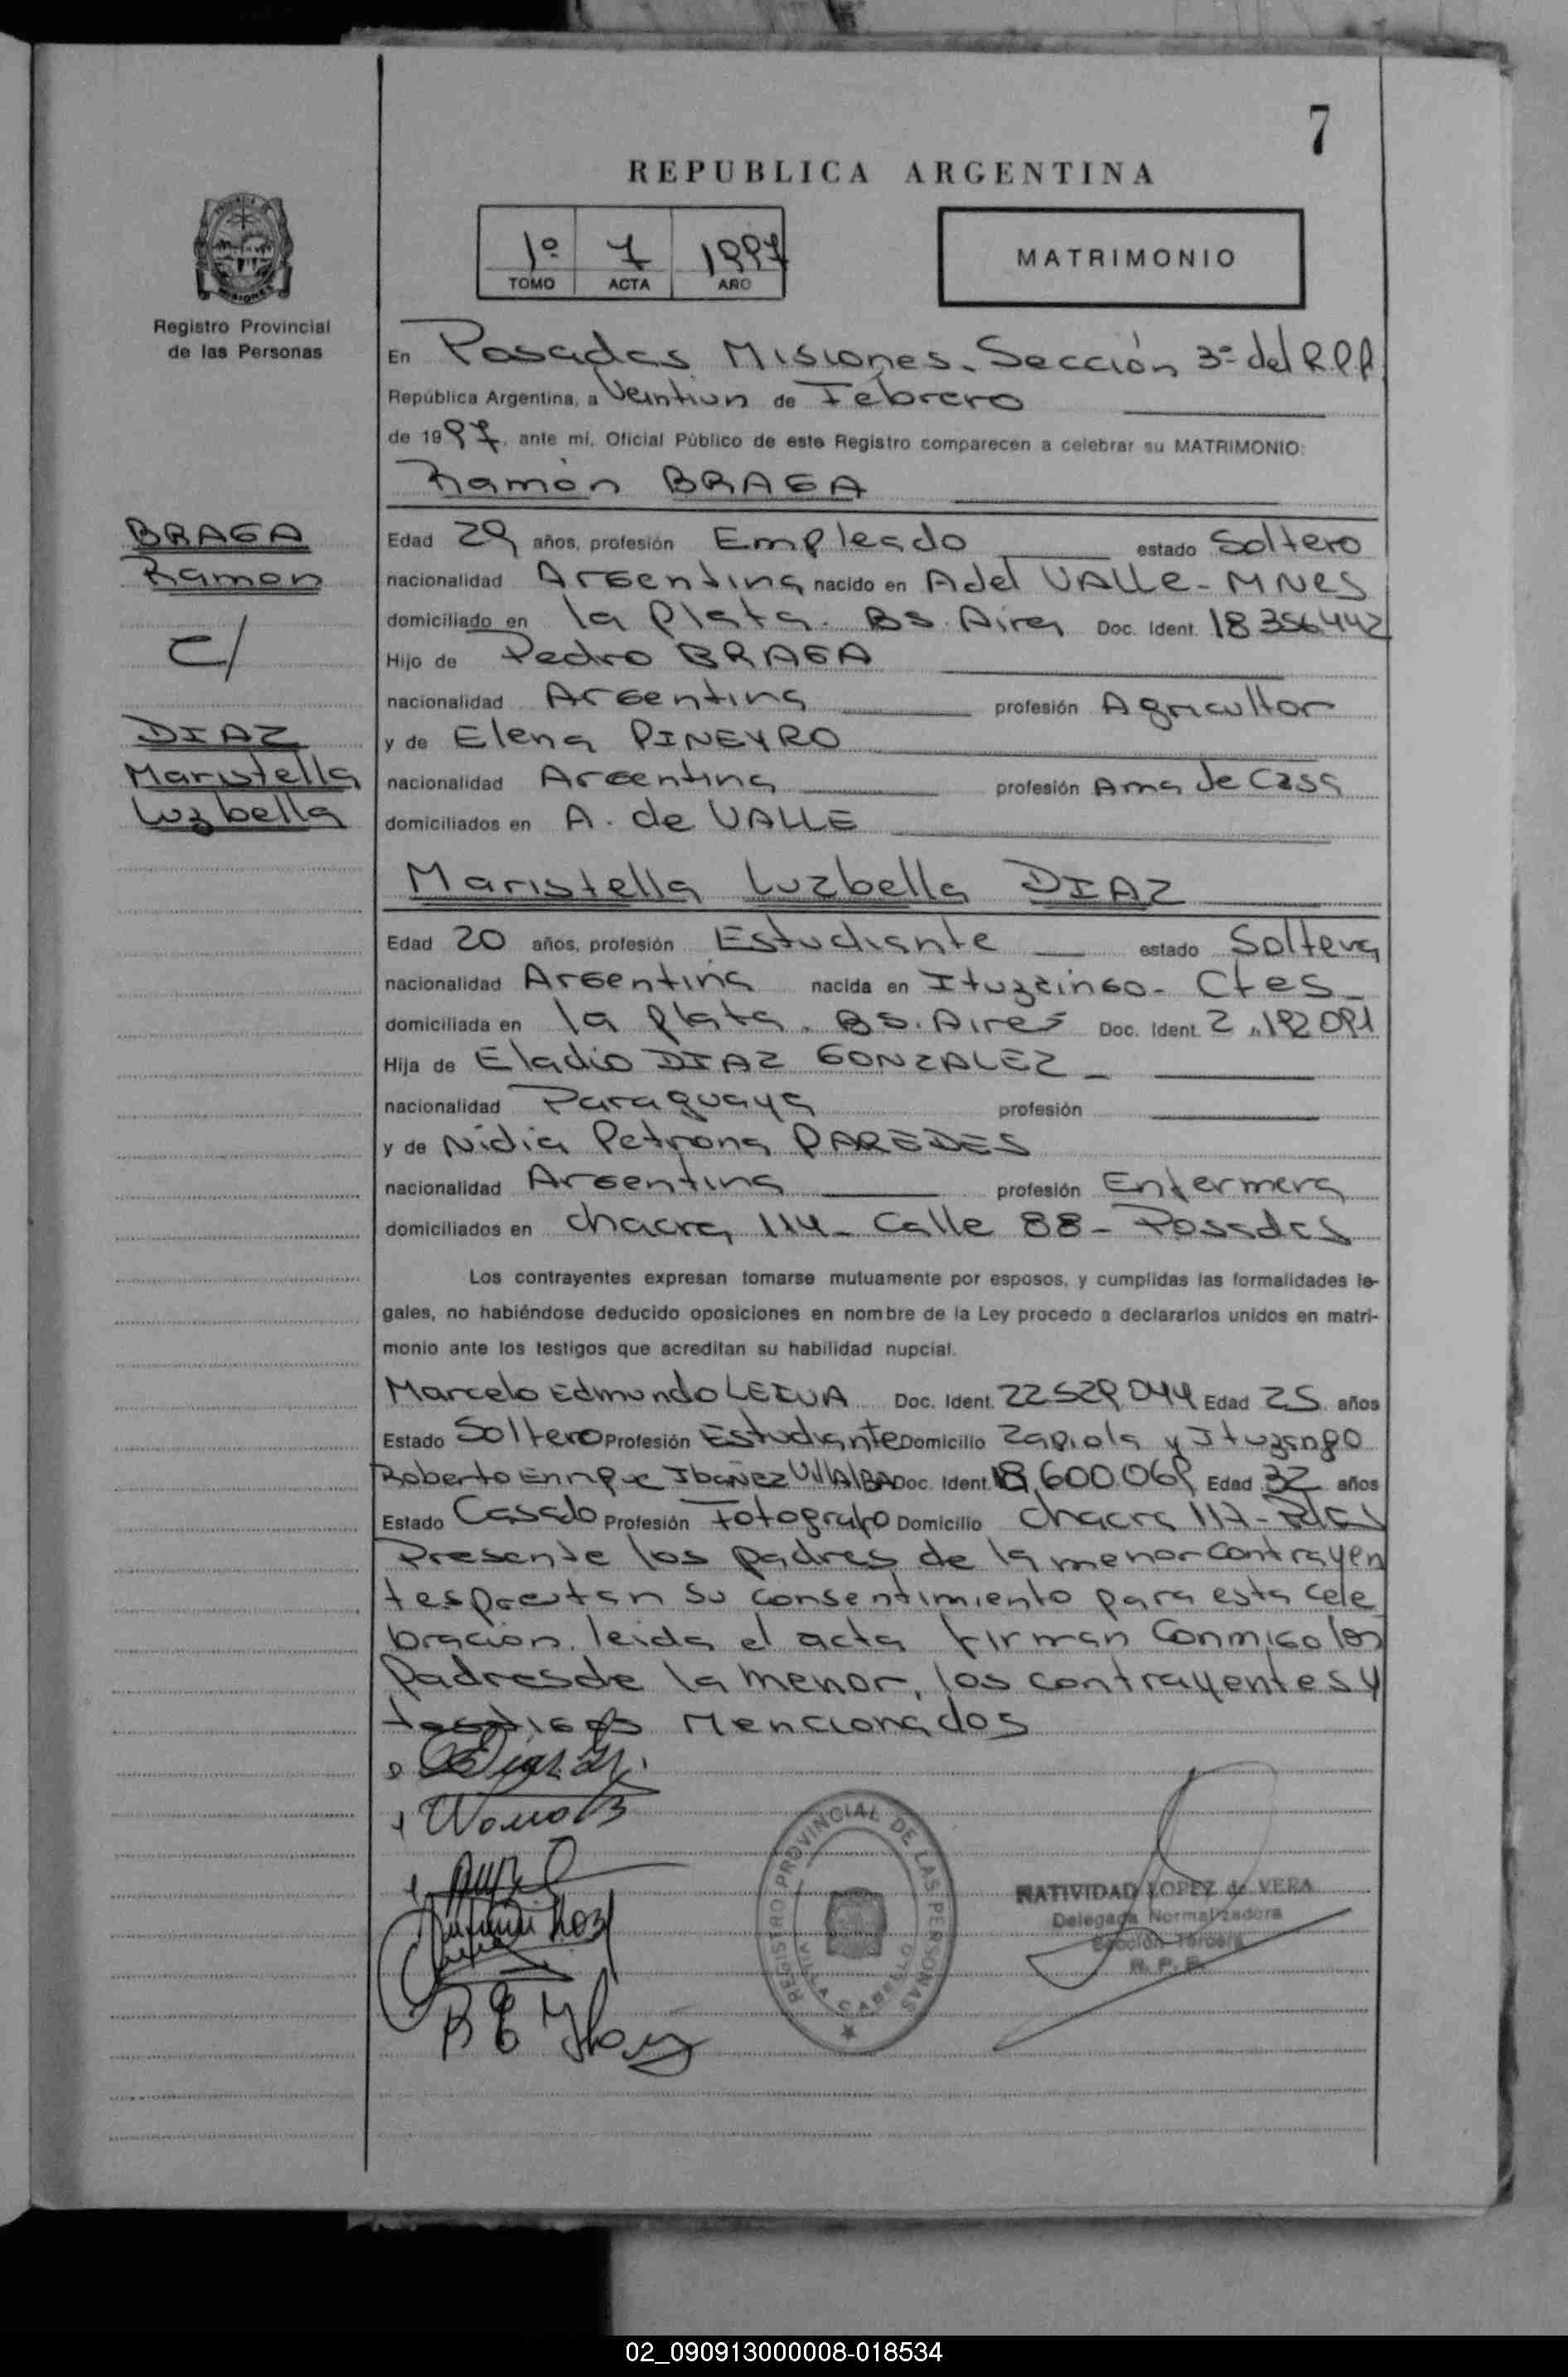 7
REPUBLICA ARGENTINA
1º 7 1997
TOMO ACTA AÑO
MATRIMONIO
MISIONES
Registro Provincial
de las Personas
En Posadas Misiones. Sección 3ª del R.P.P.
República Argentina, a Veintiun de Febrero
de 1997, ante mi, Oficial Público de este Registro comparecen a celebrar su MATRIMONIO:
Ramón BRAGA
BRAGA
Ramon
c/
DIAZ
Maristella
Luzbella
Edad 29 años, profesión Empleado estado Soltero
nacionalidad Argentina nacido en A del VALLE - MNES
domiciliado en la Plata. Bs. Aires Doc. Ident. 18356442
Hijo de Pedro BRAGA
nacionalidad Argentina profesión Agricultor
y de Elena PINEYRO
nacionalidad Argentina profesión Ama de Casa
domiciliados en A. de VALLE
Maristella Luzbella DIAZ
Edad 20 años, profesión Estudiante estado Soltera
nacionalidad Argentina nacida en Ituzaingo - Ctes
domiciliada en la plata. Bs. Aires Doc. Ident.
Hija de Eladio DIAZ GONZALEZ
nacionalidad Paraguaya profesión
y de Nidia Petrona PAREDES
nacionalidad Argentina profesión Enfermera
domiciliados en chacra 114 - Calle 88 - Posadas
Los contrayentes expresan tomarse mutuamente por esposos, y cumplidas las formalidades le-
gales, no habiéndose deducido oposiciones en nombre de la Ley procedo a declararlos unidos en matri-
monio ante los testigos que acreditan su habilidad nupcial.
Marcelo Edmundo LEIVA Doc. Ident. 22.529.044 Edad 25 años
Estado Soltero Profesión Estudiante Domicilio Zapiola y
Roberto Enrique Ibañez VillAlBA Doc. Ident. Edad 32 años
Estado Casado Profesión Fotografo Domicilio Chacra 117 - Pdas
Presente los padres de la menor contrayen
tes prestan su consentimiento para esta cele
bracion. leida el acta firman conmigo los
Padres de la menor, los contrayentes y
testigos Mencionados
REGISTRO PROVINCIAL DE LAS PERSONAS
VILLA CABELLO
NATIVIDAD LOPEZ de VERA
Delegada Normalizadora
Sección Tercera
R. P. P.
02_090913000008-018534